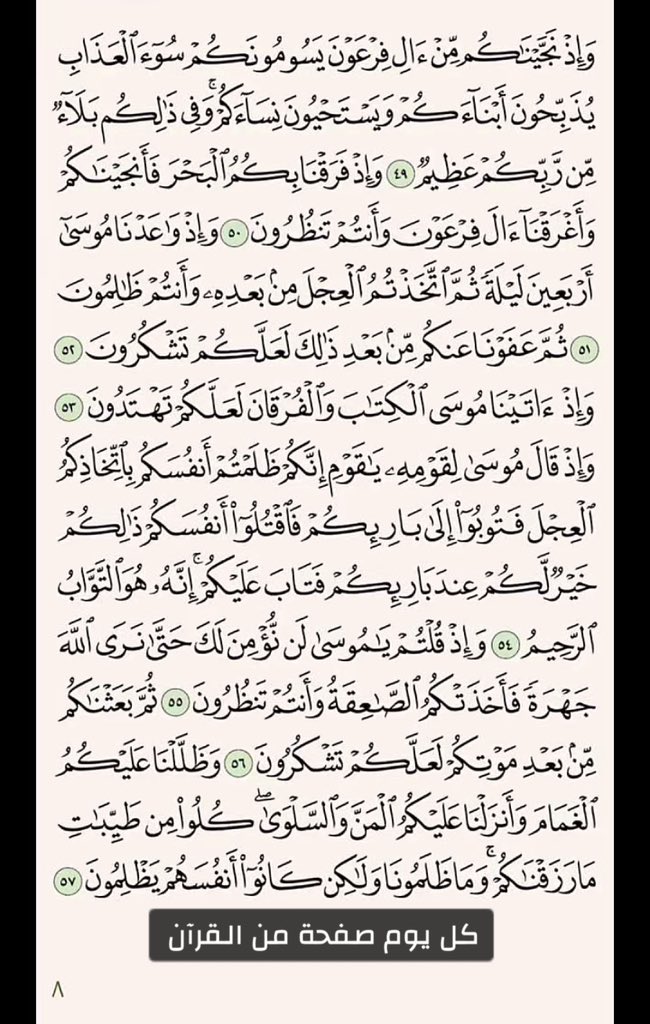 وَإِذْ نَجَّيْنَٰكُم مِّنْ ءَالِ فِرْعَوْنَ يَسُومُونَكُمْ سُوٓءَ ٱلْعَذَابِ
يُذَبِّحُونَ أَبْنَآءَكُمْ وَيَسْتَحْيُونَ نِسَآءَكُمْ ۚ وَفِى ذَٰلِكُم بَلَآءٌ
مِّن رَّبِّكُمْ عَظِيمٌ ٤٩ وَإِذْ فَرَقْنَا بِكُمُ ٱلْبَحْرَ فَأَنجَيْنَٰكُمْ
وَأَغْرَقْنَآ ءَالَ فِرْعَوْنَ وَأَنتُمْ تَنظُرُونَ ٥٠ وَإِذْ وَٰعَدْنَا مُوسَىٰٓ
أَرْبَعِينَ لَيْلَةً ثُمَّ ٱتَّخَذْتُمُ ٱلْعِجْلَ مِنۢ بَعْدِهِۦ وَأَنتُمْ ظَٰلِمُونَ
٥١ ثُمَّ عَفَوْنَا عَنكُم مِّنۢ بَعْدِ ذَٰلِكَ لَعَلَّكُمْ تَشْكُرُونَ ٥٢
وَإِذْ ءَاتَيْنَا مُوسَى ٱلْكِتَٰبَ وَٱلْفُرْقَانَ لَعَلَّكُمْ تَهْتَدُونَ ٥٣
وَإِذْ قَالَ مُوسَىٰ لِقَوْمِهِۦ يَٰقَوْمِ إِنَّكُمْ ظَلَمْتُمْ أَنفُسَكُم بِٱتِّخَاذِكُمُ
ٱلْعِجْلَ فَتُوبُوٓا۟ إِلَىٰ بَارِئِكُمْ فَٱقْتُلُوٓا۟ أَنفُسَكُمْ ذَٰلِكُمْ
خَيْرٌ لَّكُمْ عِندَ بَارِئِكُمْ فَتَابَ عَلَيْكُمْ ۚ إِنَّهُۥ هُوَ ٱلتَّوَّابُ
ٱلرَّحِيمُ ٥٤ وَإِذْ قُلْتُمْ يَٰمُوسَىٰ لَن نُّؤْمِنَ لَكَ حَتَّىٰ نَرَى ٱللَّهَ
جَهْرَةً فَأَخَذَتْكُمُ ٱلصَّٰعِقَةُ وَأَنتُمْ تَنظُرُونَ ٥٥ ثُمَّ بَعَثْنَٰكُم
مِّنۢ بَعْدِ مَوْتِكُمْ لَعَلَّكُمْ تَشْكُرُونَ ٥٦ وَظَلَّلْنَا عَلَيْكُمُ
ٱلْغَمَامَ وَأَنزَلْنَا عَلَيْكُمُ ٱلْمَنَّ وَٱلسَّلْوَىٰ ۖ كُلُوا۟ مِن طَيِّبَٰتِ
مَا رَزَقْنَٰكُمْ ۚ وَمَا ظَلَمُونَا وَلَٰكِن كَانُوٓا۟ أَنفُسَهُمْ يَظْلِمُونَ ٥٧
كل يوم صفحة من القرآن
٨